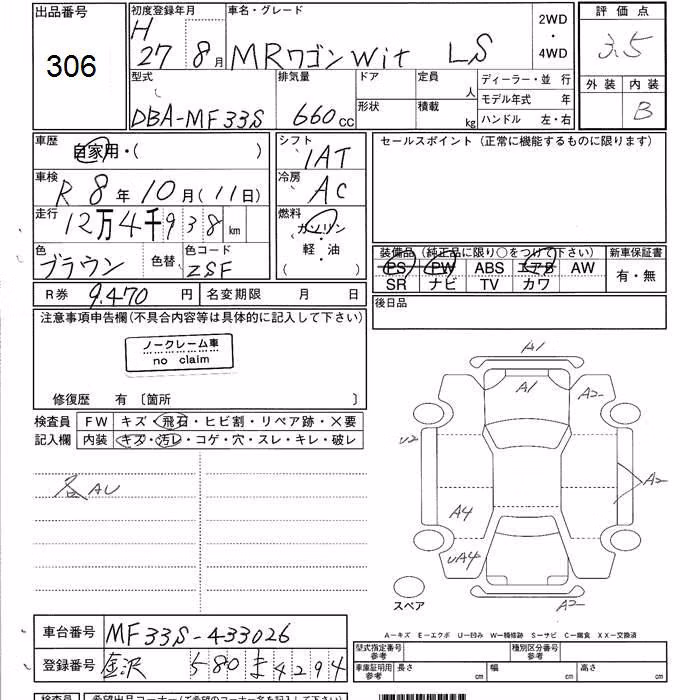 出品番号
306
初度登録年月
H 27 8月
車名・グレード
MRワゴンwit LS
2WD
・
4WD
評価点
3.5
外装 内装
B
型式
DBA-MF33S
排気量
660cc
ドア
定員
人
形状
積載
kg
ディーラー・並 行
モデル年式 年
ハンドル 左・右
車歴
自家用・( )
シフト
IAT
セールスポイント(正常に機能するものに限ります)
車検
R 8年 10月(11日)
冷房
AC
走行
12万4千938km
燃料
ガソリン
・
軽・油
( )
色
ブラウン
色替
色コード
ZSF
装備品(純正品に限り○をつけて下さい)
PS PW ABS エアB AW
SR ナビ TV カワ
新車保証書
有・無
R券 9.470円
名変期限 月 日
後日品
注意事項申告欄(不具合内容等は具体的に記入して下さい)
ノークレーム車
no claim
修復歴 有 〔箇所 〕
検査員
記入欄
FW キズ・飛石・ヒビ割・リペア跡・×要
内装 キズ・汚レ・コゲ・穴・スレ・キレ・破レ
各AU
A1
A1
A2
U2
A2
A4
UA4
A2
スペア
A－キズ E－エクボ U－凹み W－補修跡 S－サビ C－腐食 XX－交換済
車台番号
MF33S-433026
登録番号
金沢 580 ま 4294
型式指定番号
参考
種別区分番号
参考
車庫証明用
参考
長さ cm
幅 cm
高さ cm
検査員
希望出品コーナー